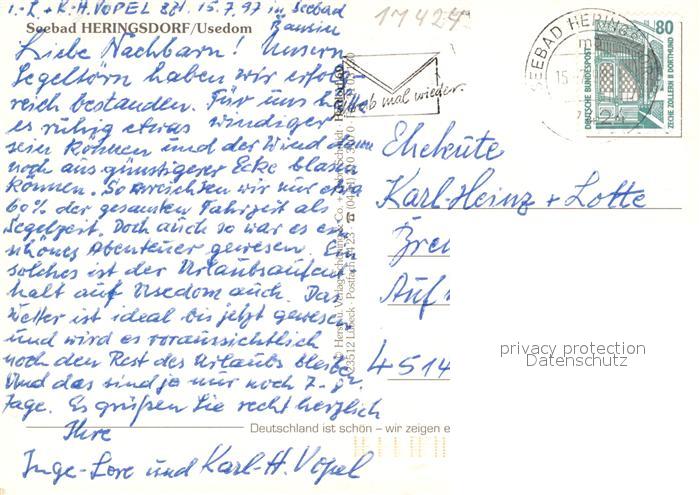 I.-L. + K.-H. VOPEL z.Zt. 15.7.97 in Seebad
Bansin
Seebad HERINGSDORF/Usedom
Liebe Nachbarn! Unseren
Segeltörn haben wir erfolg-
reich bestanden. Für uns hätte
es ruhig etwas windiger
sein können und der Wind dann
noch aus günstigerer Ecke blasen
können. So erreichten wir nur etwa
60% der gesamten Fahrzeit als
Segelzeit. Doch auch so war es ein
schönes Abenteuer gewesen. Ein
solches ist der Urlaubsaufent-
halt auf Usedom auch. Das
Wetter ist ideal bis jetzt gewesen
und wird es voraussichtlich
noch den Rest des Urlaubs bleiben
Und das sind ja nur noch 7
Tage. Es grüßen Sie recht herzlich
Ihre
Inge-Lore und Karl-H. Vopel
Deutschland ist schön – wir zeigen e
23512 Lübeck · Postfach
11424
mal wieder.
SEEBAD HERINGS
15
80
DEUTSCHE BUNDESPOST
ZECHE ZOLLERN II DORTMUND
Eheleute
Karl-Heinz + Lotte
Bre
Auf
4514
privacy protection
Datenschutz